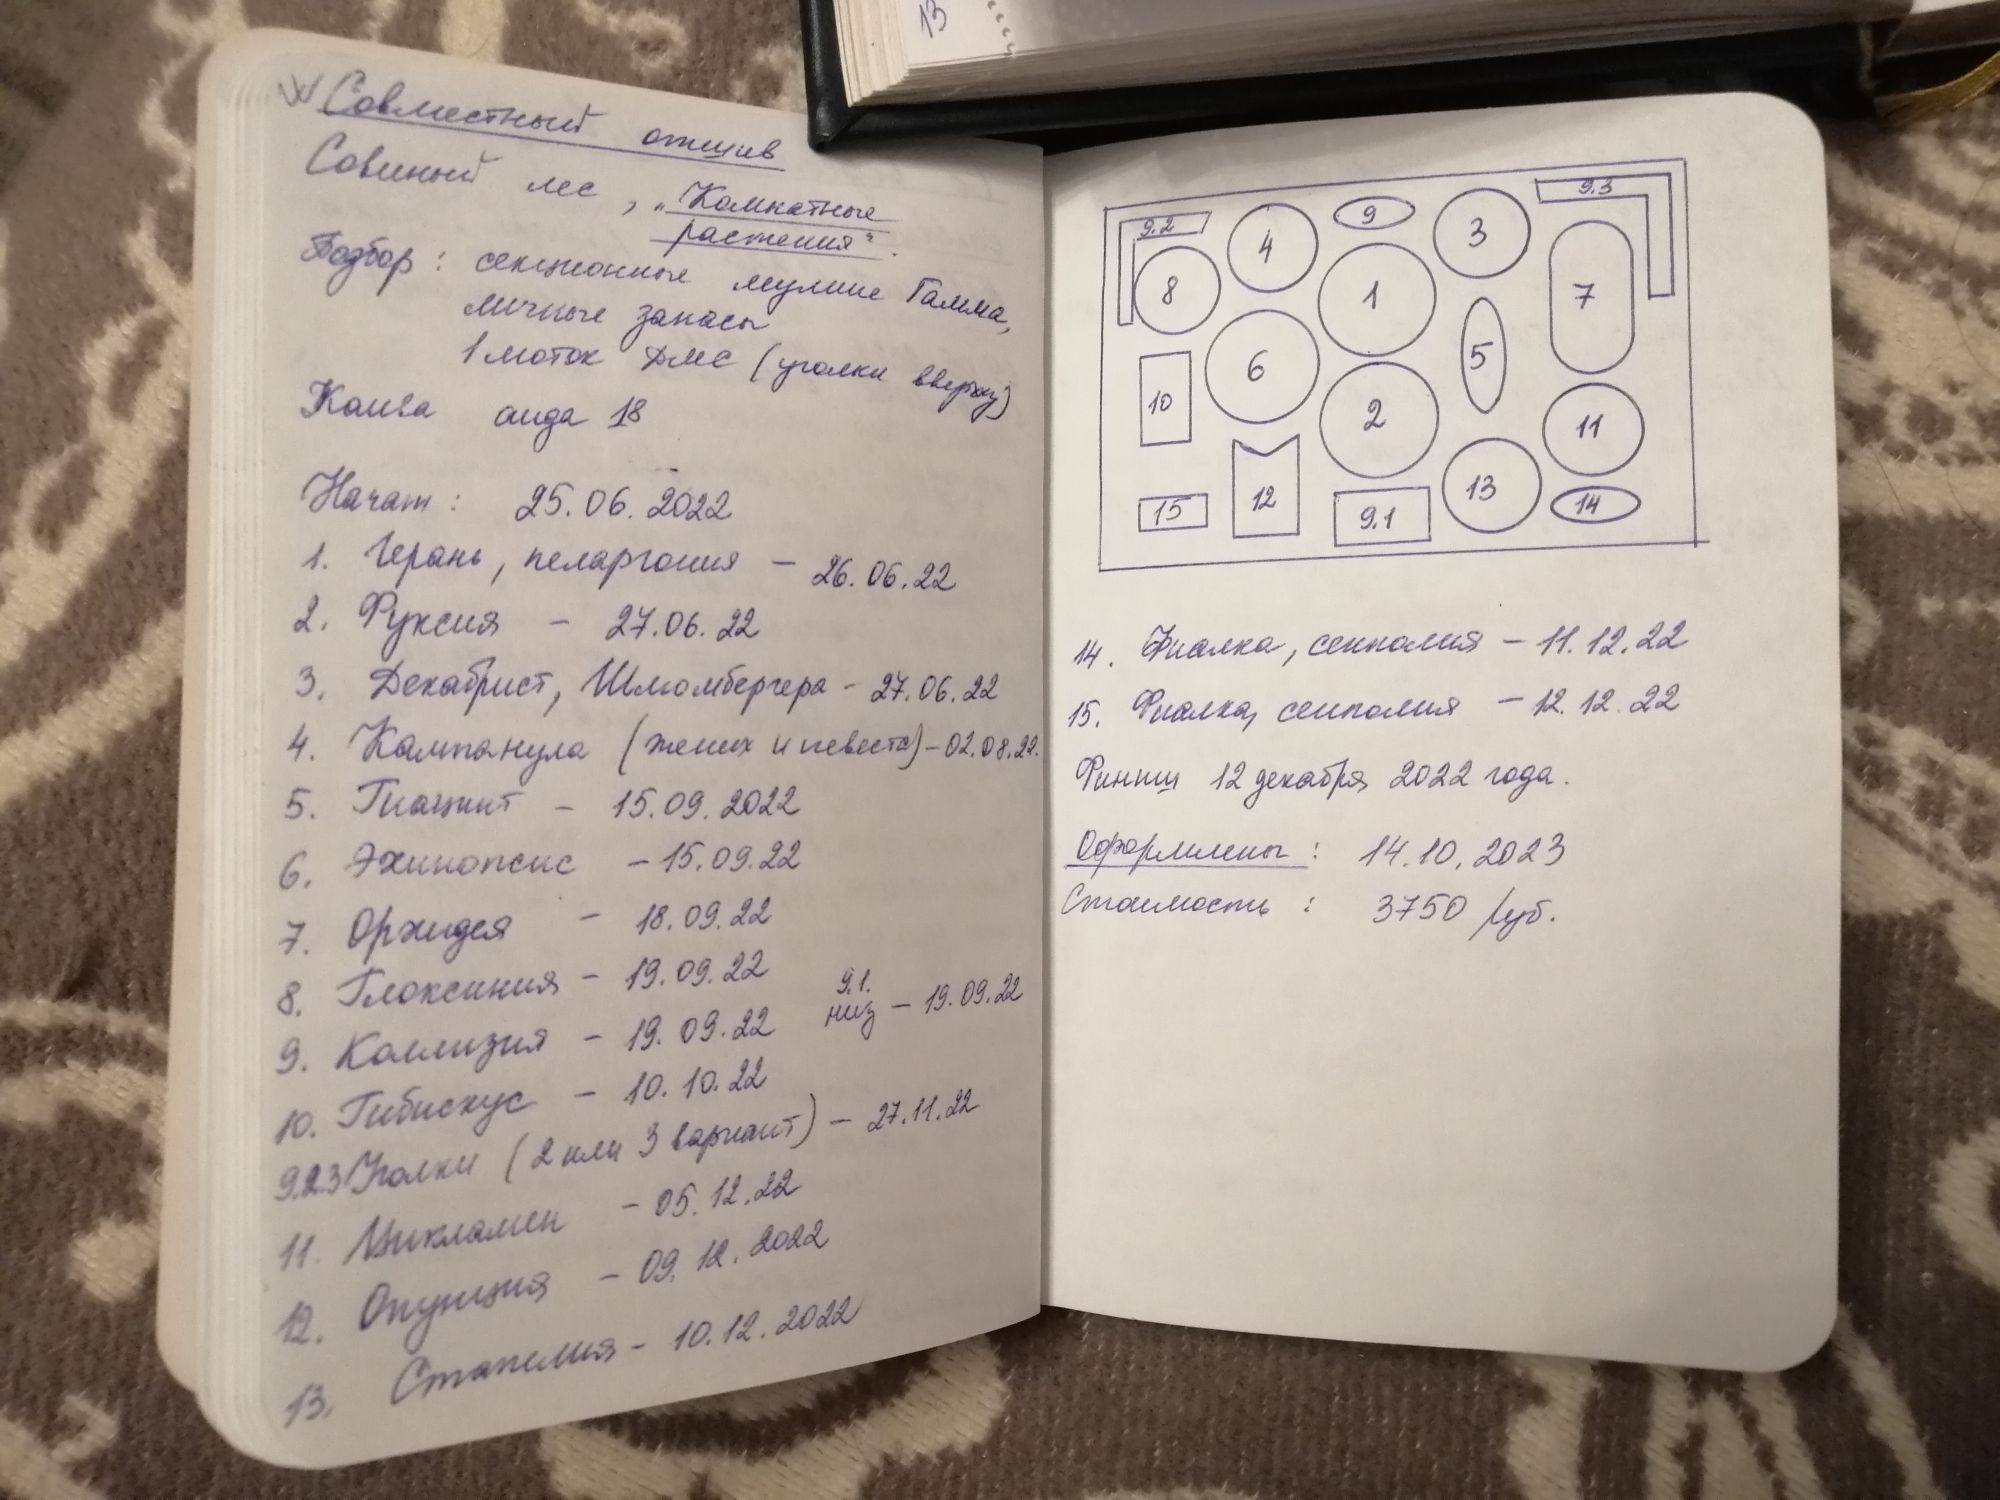 Совместный отшив
Совиный лес, „Комнатные
растения".
Подбор: секционные мулине Гамма,
личные запасы
1 моток ДМС (уголки вверху)
Канва аида 18
Начат: 25.06.2022
1. Герань, пеларгония - 26.06.22
2. Фуксия - 27.06.22
3. Декабрист, Шлюмбергера - 27.06.22
4. Кампанула (жених и невеста) - 02.08.22.
5. Гиацинт - 15.09.2022
6. Эхинопсис - 15.09.22
7. Орхидея - 18.09.22
8. Глоксиния - 19.09.22
9. Каллизия - 19.09.22 9.1. низ - 19.09.22
10. Гибискус - 10.10.22
9.2.3 Уголки (2 или 3 вариант) - 27.11.22
11. Цикламен - 05.12.22
12. Опунция - 09.12.2022
13. Стапелия - 10.12.2022
13
9.2 4 9 3 9.3
8 1 7
6 5
10 2 11
15 12 9.1 13 14
14. Фиалка, сенполия - 11.12.22
15. Фиалка, сенполия - 12.12.22
Финиш 12 декабря 2022 года.
Оформлены: 14.10.2023
Стоимость: 3750 руб.